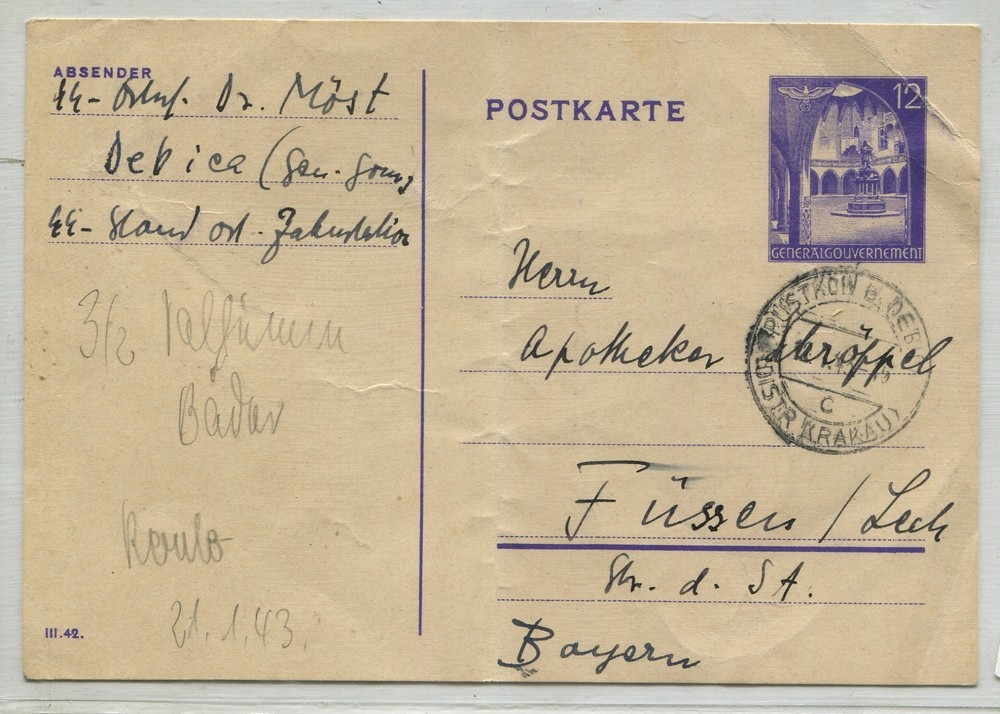 ABSENDER
SS-Ostuf. Dr. Möst
Debica (Gen. Gouv.
SS-Stand ort-
III.42.
Bäder
Konto
21. 1. 43.
POSTKARTE
12
GENERALGOUVERNEMENT
PUSTKOW B. DEB
(DISTR KRAKAU)
c
Herrn
Apotheker Schröppel
Füssen / Lech
Str. d. SA.
Bayern